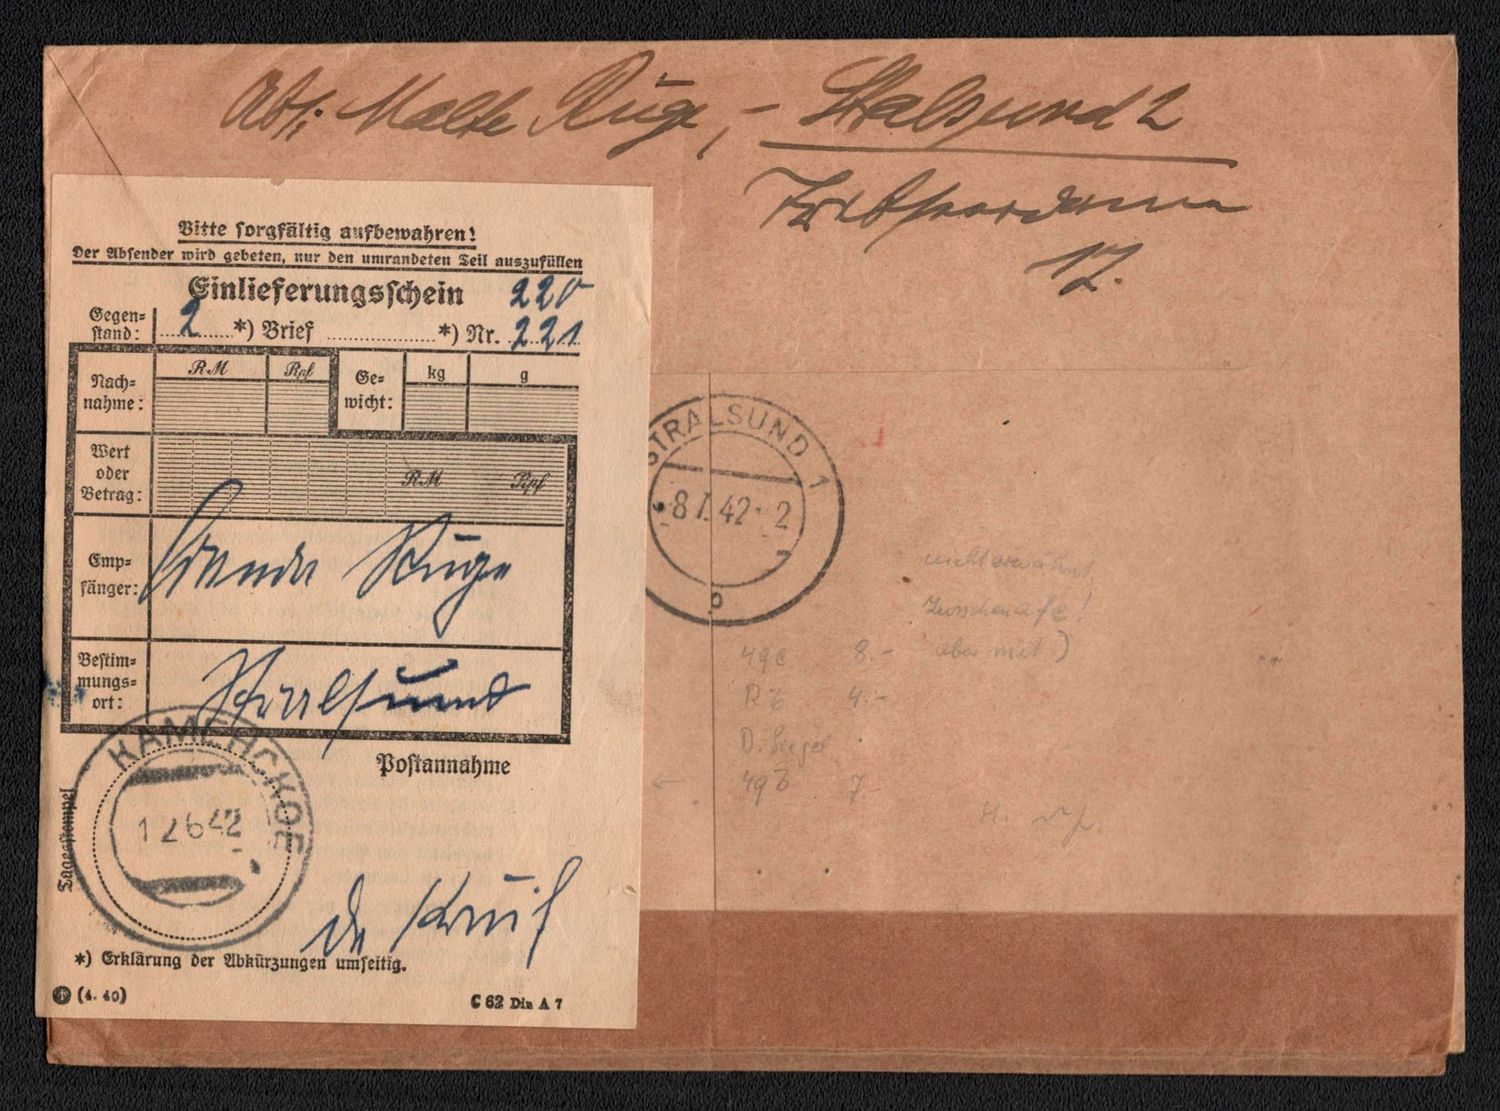 Abs: Malte Ruge, – Stralsund 2
17.
Bitte sorgfältig aufbewahren!
Der Absender wird gebeten, nur den umrandeten Teil auszufüllen
Einlieferungsschein 220
Gegen=
stand: 2 *) Brief *) Nr. 221
Nach=
nahme: RM Rpf
Ge=
wicht: kg g
Wert
oder
Betrag: RM Rpf
Emp=
fänger: Ruge
Bestim=
mungs=
ort: Stralsund
Postannahme
Tagesstempel
KAMENSKOE
12642
de Kruif
*) Erklärung der Abkürzungen umseitig.
(4. 40) C 62 Din A 7
STRALSUND 1
-8.1.42-2
b
nicht erwähnt,
aber mit)
49c 8.-
R6 4.-
D. Siegel
← 49b 7.-